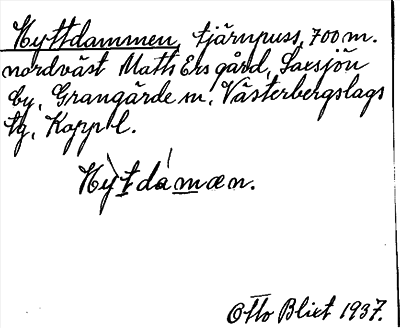 Hyttdammen, tjärnpuss, 700 m.
nordväst Mats Ers gård, Saxsjön
by, Grangärde sn, Västerbergslags
tg, Kopp l.
Hỳt̲dám̲æn.
Otto Blixt 1937.